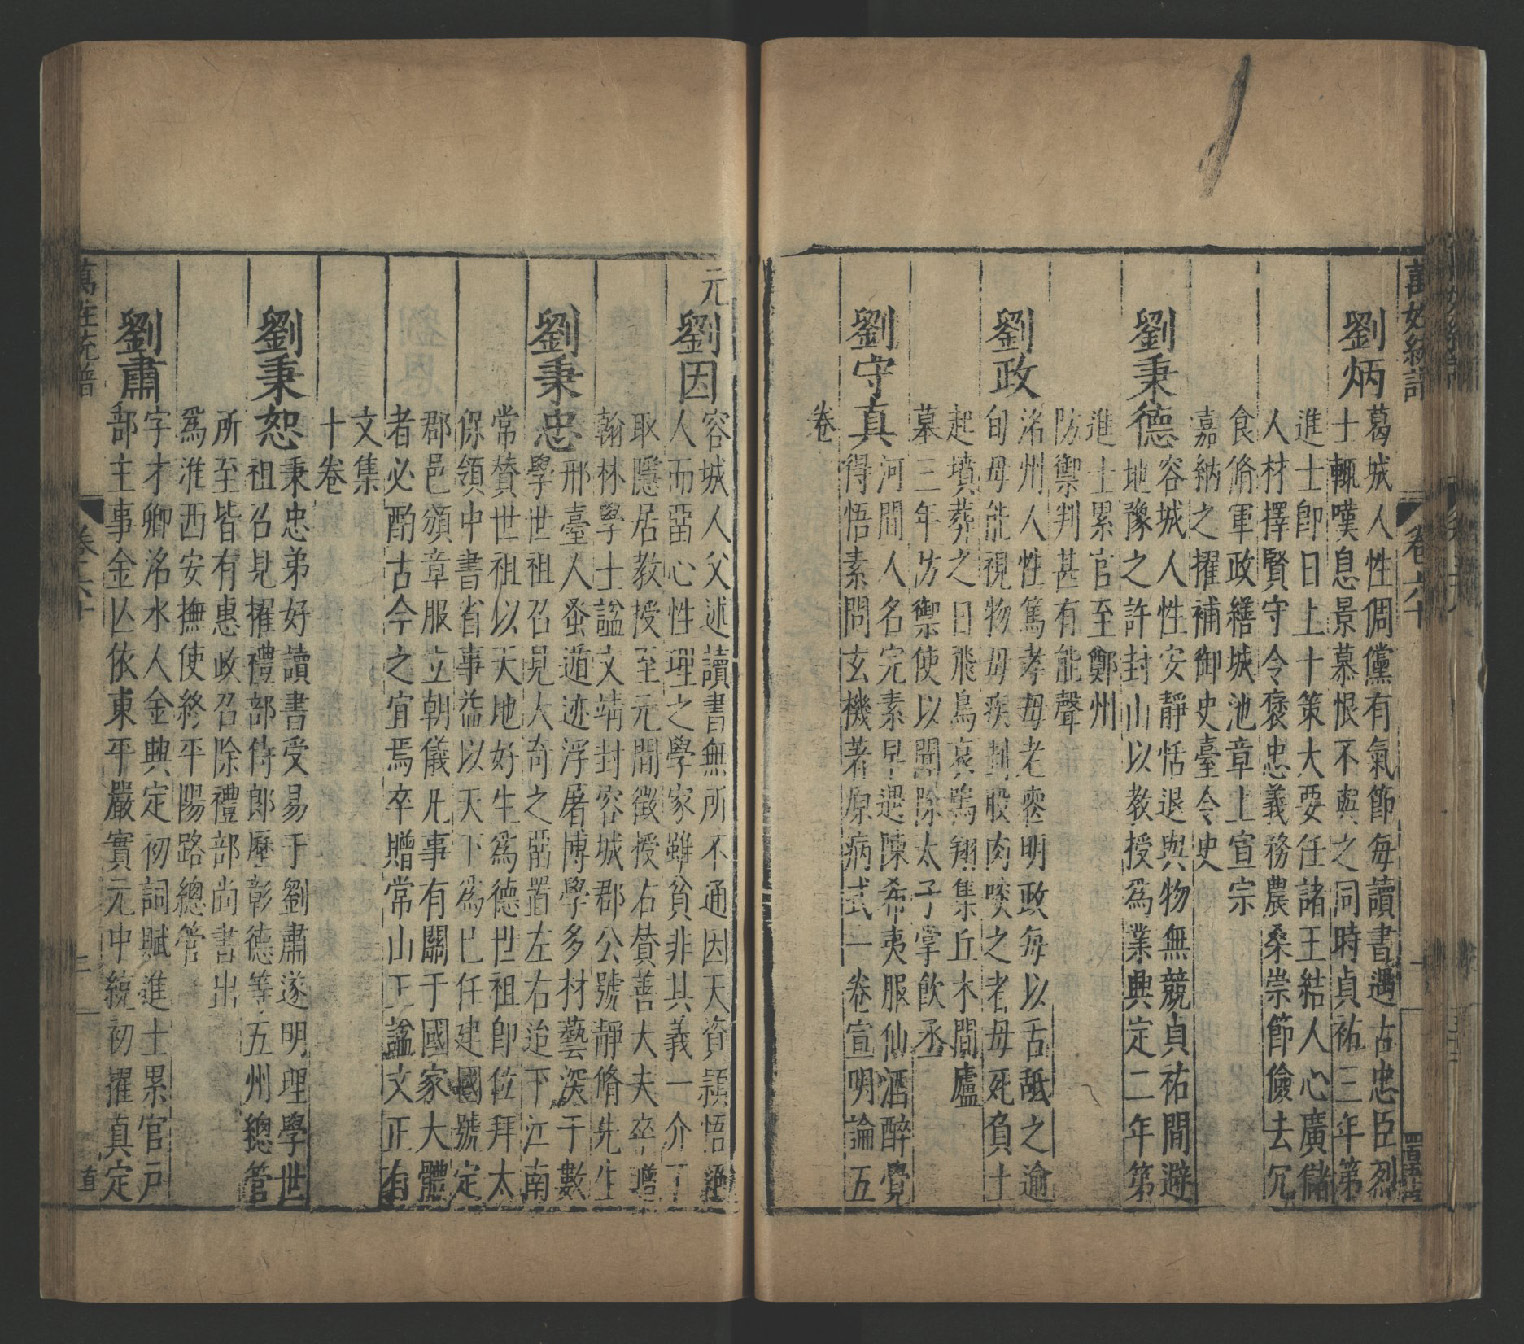 萬姓統譜
卷六十
劉炳
葛城人性倜儻有氣節每讀書遇古忠臣烈
士輒嘆息景慕恨不與之同時貞祐三年第
進士卽日上十策大要任諸王結人心廣儲
人材擇賢守令褒忠義務農桑崇節儉去冗
食脩軍政繕城池章上宣宗
嘉納之擢補御史臺令史
劉秉德
容城人性安靜恬退與物無競貞祐間避
地豫之許封山以教授爲業興定二年第
進士累官至鄭州
防禦判甚有能聲
劉政
洺州人性篤孝母老喪明政每以舌舐之逾
旬母能視物母疾刲股肉啖之者母死負土
起墳葬之日飛鳥哀鳴翔集丘木間廬
墓三年防禦使以聞除太子掌飲丞
劉守真
河間人名完素早遇陳希夷服仙酒醉覺
得悟素問玄機著原病式一卷宣明論五
卷
元
劉因
容城人父述讀書無所不通因天資穎悟
人而函心性理之學家雖貧非其義一介
取隱居教授至元間徵授右贊善大夫卒贈
翰林學士謚文靖封容城郡公號靜脩先生
劉秉忠
邢臺人蚤遁迹浮屠博學多材藝深于數
學世祖召見大奇之留置左右迨下江南
常贊世祖以天地好生爲德世祖卽位拜太
保領中書省事益以天下爲已任建國號定
郡邑頒章服立朝儀凡事有關于國家大體
者必酌古今之宜焉卒贈常山王謚文正有
文集
十卷
劉秉恕
秉忠弟好讀書受易于劉肅遂明理學世
祖召見擢禮部侍郎歷彰德等五州總管
所至皆有惠政召除禮部尚書出
爲淮西安撫使終平陽路總管
劉肅
字才卿洺水人金興定初詞賦進士累官戶
部主事金亾依東平嚴實元中統初擢真定
萬姓統譜
卷六十